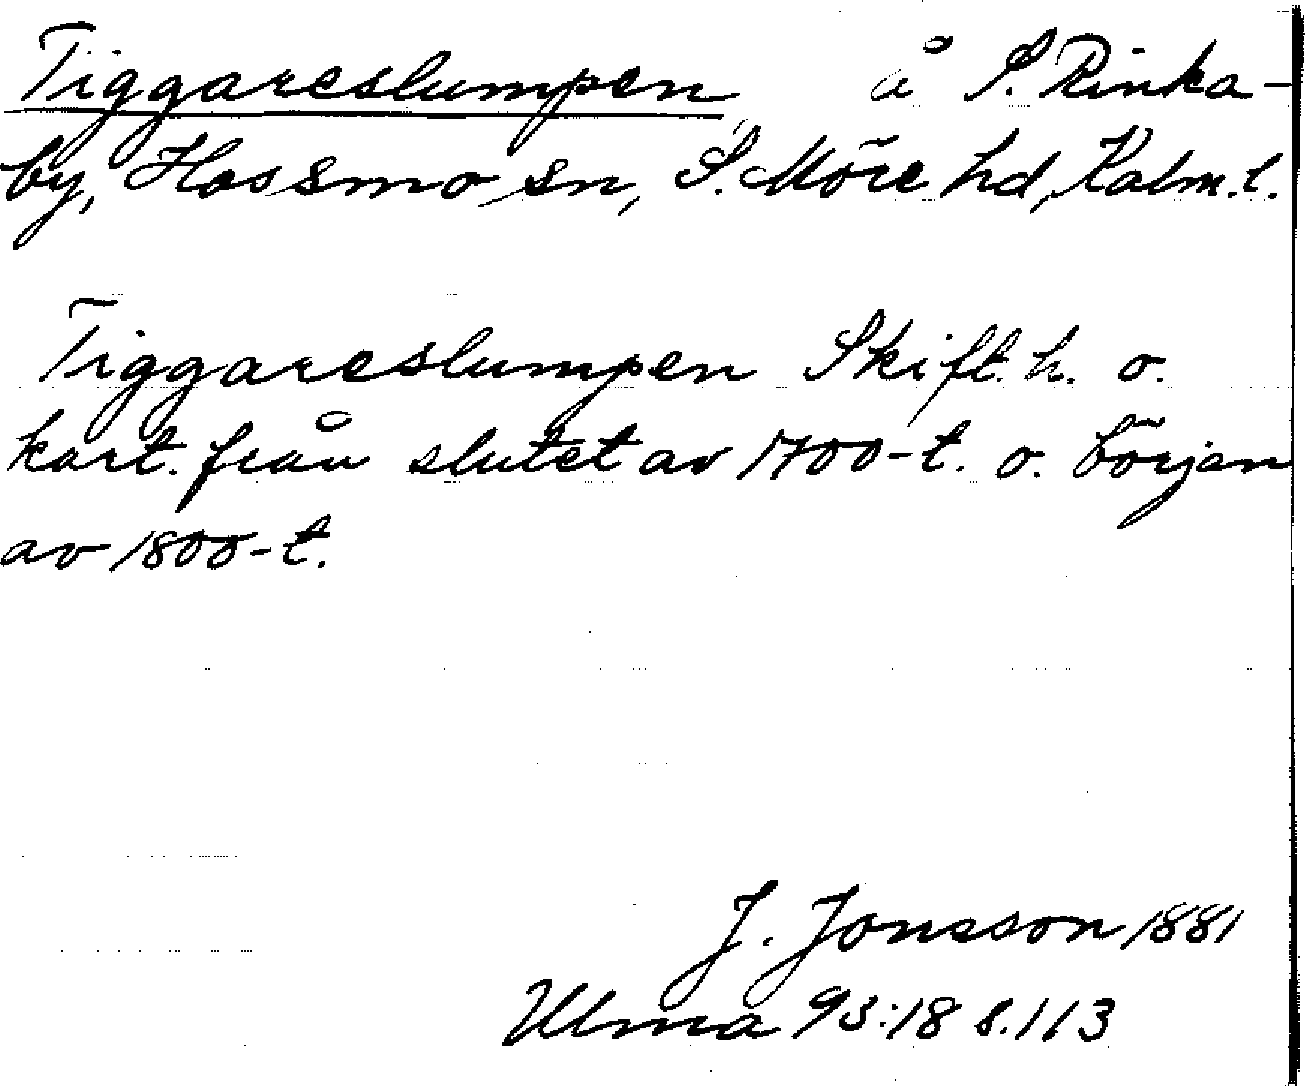 Tiggareslumpen, å S. Rinka-
by, Hossmo sn, S. Möre hd, Kalm. l.
Tiggareslumpen Skift. h. o.
kart. från slutet av 1700-t. o. början
av 1800-t.
J. Jonsson 1881
Ulma 93:18 s. 113